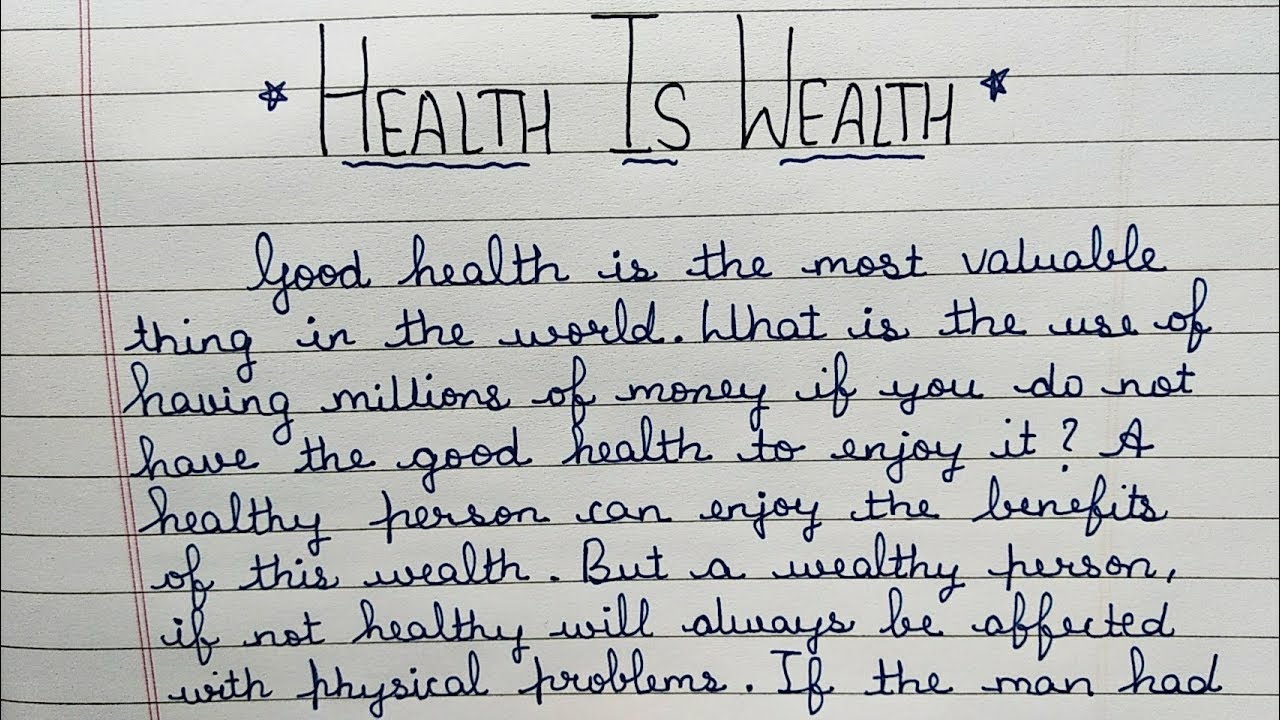 HEALTH IS WEALTH
Good health is the most valuable
thing in the world. What is the use of
having millions of money if you do not
have the good health to enjoy it? A
healthy person can enjoy the benefits
of this wealth. But a wealthy person,
if not healthy will always be affected
with physical problems. If the man had